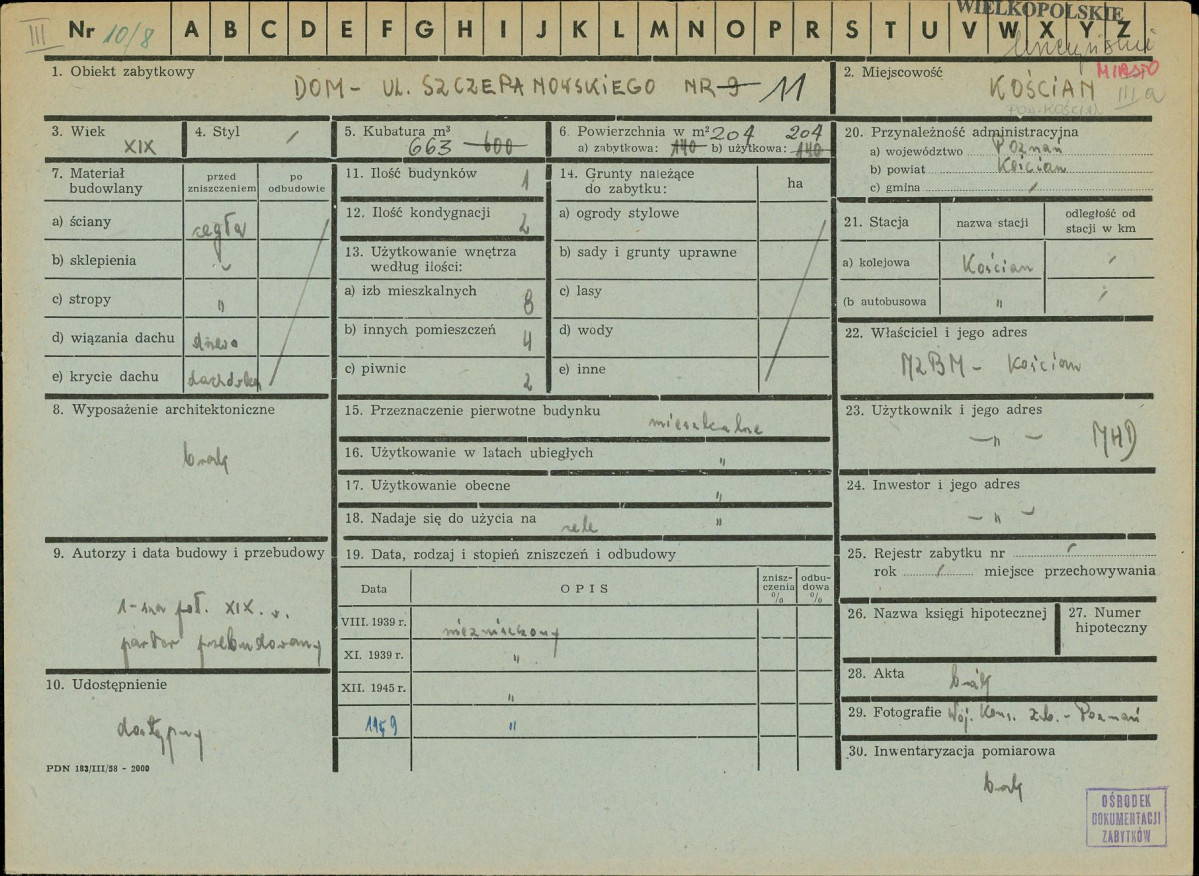 WIELKOPOLSKIE
III Nr 10/8 A B C D E F G H I J K L M N O P R S T U V W X Y Z
MIASTO
III a
1. Obiekt zabytkowy
DOM - UL. SZCZEPANOWSKIEGO NR 9 11
2. Miejscowość
KOŚCIAN
POW. KOŚCIAN
3. Wiek
XIX
4. Styl
/
5. Kubatura m³
663 600
6. Powierzchnia w m² 204 204
a) zabytkowa: 140 b) użytkowa: 140
7. Materiał budowlany
przed zniszczeniem
po odbudowie
a) ściany cegła
b) sklepienia "
c) stropy "
d) wiązania dachu drewno
e) krycie dachu dachówka
8. Wyposażenie architektoniczne
brak
9. Autorzy i data budowy i przebudowy
1-sza poł. XIX. w.
parter przebudowany
10. Udostępnienie
dostępny
PDN 183/III/58 - 2000
11. Ilość budynków 1
12. Ilość kondygnacji 2
13. Użytkowanie wnętrza
według ilości:
a) izb mieszkalnych 8
b) innych pomieszczeń 4
c) piwnic 2
14. Grunty należące
do zabytku:
ha
a) ogrody stylowe
b) sady i grunty uprawne
c) lasy
d) wody
e) inne
15. Przeznaczenie pierwotne budynku mieszkalne
16. Użytkowanie w latach ubiegłych "
17. Użytkowanie obecne "
18. Nadaje się do użycia na cele "
19. Data, rodzaj i stopień zniszczeń i odbudowy
Data
OPIS
znisz-
czenia
%
odbu-
dowa
%
VIII. 1939 r. niezniszczony
XI. 1939 r. "
XII. 1945 r. "
1959 "
20. Przynależność administracyjna
a) województwo Poznań
b) powiat Kościan
c) gmina /
21. Stacja
nazwa stacji
odległość od
stacji w km
a) kolejowa Kościan /
(b autobusowa " /
22. Właściciel i jego adres
MZBM - Kościan
23. Użytkownik i jego adres
- " - MHD
24. Inwestor i jego adres
- " -
25. Rejestr zabytku nr /
rok / miejsce przechowywania
26. Nazwa księgi hipotecznej
27. Numer
hipoteczny
28. Akta
brak
29. Fotografie Woj. Kons. Zab. - Poznań
30. Inwentaryzacja pomiarowa
brak
OŚRODEK
DOKUMENTACJI
ZABYTKÓW